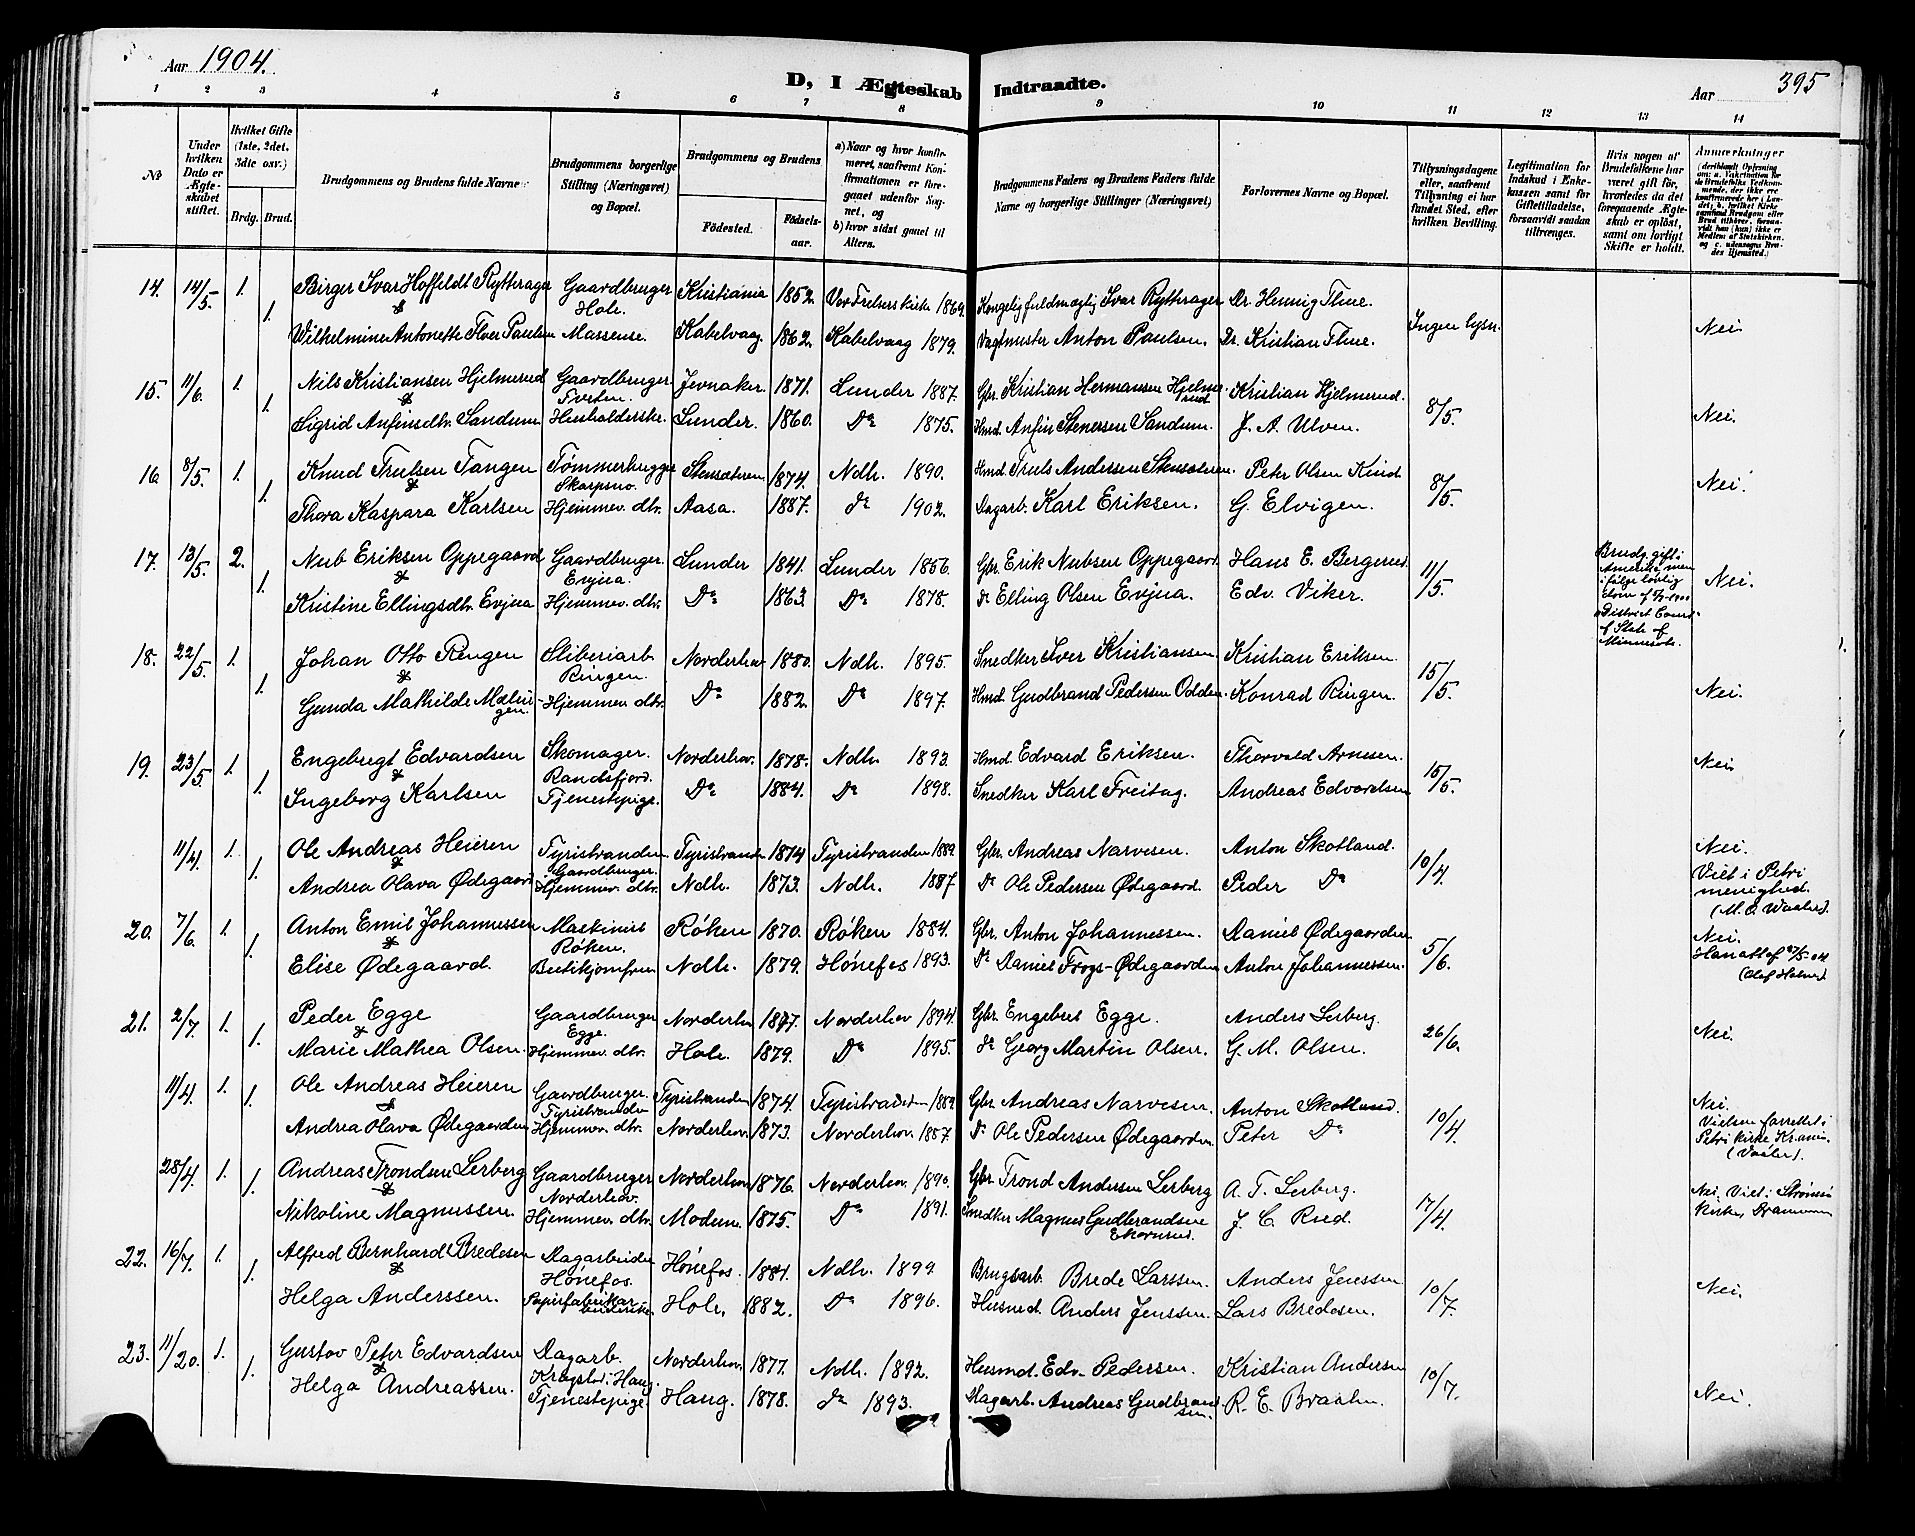 Aar 1904.
D, I Ægteskab Indtraadte.
Aar 395
1 2 3 4 5 6 7 8 9 10 11 12 13 14
No
Under hvilken Dato er Ægteskabet stiftet.
Hvilket Gifte (1ste, 2det, 3dte osv.)
Brdg. Brud.
Brudgommens og Brudens fulde Navne
Brudgommens borgerlige Stilling (Næringsvei) og Bopæl.
Brudgommens og Brudens
Fødested.
Fødselsaar.
a) Naar og hvor konfirmeret, saafremt Konfirmationen er foregaaet udenfor Sognet, og
b) hvor sidst gaaet til Alters.
Brudgommens Faders og Brudens Faders fulde Navne og borgerlige Stillinger (Næringsvei)
Forlovernes Navne og Bopæl.
Tillysningsdagene eller, saafremt Tillysning ei har fundet Sted, efter hvilken Bevilling.
Legitimation for Indskud i Enkekassen samt for Giftetilladelse, forsaavidt saadan tiltrænges.
Hvis nogen af Brudefolkene har været gift før, hvorledes da det foregaaende Ægteskab er opløst, samt om lovligt Skifte er holdt.
Anmærkninger
14. 14/5. 1. Birger Ivar Hoffeldt Rytterager Gaardbruger Hole. Kristiania 1852. Vor Frelsers kirke 1869. Kongelig fuldmægtig Ivar Rytterager Dr. Hennig Thue. Ingen lysn.
&
1. Wilhelmine Antonette Paulsen Massense. Kabelvaag. 1862. Kabelvaag 1879. Vagtmester Anton Paulsen. Dr. Kristian Thue. Nei
15. 11/6. 1. Nils Kristiansen Hjelmerud Gaardbruger Tveten. Jevnaker. 1871. Lunder 1887. Gbr. Kristian Hermansen Hjelmerud Kristian Hjelmerud. 8/5.
&
1. Sigrid Anfinsdtr. Sandum Husholderske. Lunder. 1860. Do 1875. Hmd. Anfin Stenersen Sandum. J. A. Ulven. Nei.
16. 8/5. 1. Knud Trulsen Tangen Tømmerhugger Skarpsno. Stensæteren 1874. Ndh. 1890. Hmd Truls Andersen Stensæteren. Peter Olsen Kind 8/5.
&
1. Thora Kaspara Karlsen Hjemmev. dtr. Aasa. 1887. do 1902. Dagarb. Karl Eriksen. G. Elvigen. Nei.
17. 13/5. 2. Nub Eriksen Oppegaard Gaardbruger. Evjua. Lunder 1841. Lunder 1856. Gbr. Erik Nubsen Oppegaard. Hans E. Bergerud 11/5.
&
1. Kristine Ellingsdtr. Evjua Hjemmev. dtr. Do 1863. Do 1878. do Elling Olsen Evjua. Edv. Viker. Nei.
Brudg. gift i Amerika, men ifølge lovlig District Court of State of Minnesota.
18. 22/5. 1. Johan Otto Ringen Sliberiarb Ringen. Norderhov 1880. Ndh. 1895. Snedker Iver Kristiansen. Kristian Eriksen. 15/5.
&
1. Gunda Mathilde Hjemmev. dtr. Do 1882. Do 1897. Hmd. Gudbrand Pedersen Odden. Konrad Ringen. Nei.
19. 23/5. 1. Engebregt Edvardsen Skomager. Randsfjord. Norderhov. 1878. Ndh. 1893. Hmd. Edvard Eriksen. Thorvald Arnesen. 15/5.
&
1. Ingeborg Karlsen Tjenestepige. Do 1884. Do 1898. Snedker Karl Freitag. Andreas Edvardsen Nei
11/4. 1. Ole Andreas Heieren Tyristranden Gaardbruger. Tyristranden 1874 Tyristranden 1889. Gbr. Andreas Narvesen. Anton Skotland. 10/4.
&
1. Andrea Olava Ødegaard Hjemmev. dtr. Ndh. 1873. Ndh. 1887 Do Ole Pedersen Ødegaard. Peder Do
Nei. Viet i Petri menighed. (M. O. Waaler).
20. 7/6. 1. Anton Emil Johannessen Maskinist Røken. Røken 1870. Røken 1884. Gbr. Anton Johannessen. Daniel Ødegaarden 5/6.
&
1. Elise Ødegaard. Butikjomfru Ndh. 1879. Hønefos 1893. Do Daniel Frogs-Ødegaarden Anton Johannessen.
Nei.
21. 2/7. 1. Peder Egge Gaardbruger Egge. Norderhov 1877. Norderhov 1894. Gbr. Engebret Egge. Anders Lerberg. 26/6.
&
1. Marie Mathea Olsen. Hjemmev. dtr. Hole. 1879. Do 1895. do Georg Martin Olsen. G. M. Olsen. Nei.
11/4. 1. Ole Andreas Heieren Gaardbruger. Tyristranden Tyristranden 1874. Tyristranden 1889. Gbr. Andreas Narvesen. Anton Skotland. 10/4.
&
1. Andrea Olava Ødegaarden Hjemmev. dtr. Norderhov. 1873. Norderhov. 1887. Do Ole Pedersen Ødegaarden Peter Do
Nei. Vielsen forrettet i Petri kirke Krania. (Vaaler).
28/4. 1. Andreas Trondsen Lerberg Gaardbruger Norderhov. Norderhov 1876. Norderhov. 1890. Gbr. Trond Andersen Lerberg A. T. Lerberg. 17/4.
&
1. Nikoline Magnussen. Hjemmev. dtr. Modum. 1875. Do 1891. Snedker Magnus Gudbrandsen Ekornrud. J. C. Rud.
Nei. Viet i Strømsø kirke, Drammen
22. 16/7. 1. Alfred Bernhard Bredesen Dagarbeider Hønefos. Hønefos. 1884. Ndh. 1899. Brugsarb. Brede Larssen. Anders Jenssen 10/7.
&
1. Helga Anderssen. Papirfabrikarbeiderske Hole, 1882. Do 1896. Husmd. Anders Jenssen. Lars Bredesen. Nei.
23. 11/20. 1. Gustav Peter Edvardsen Dagarb. Haug. Norderhov. 1877. Ndh. 1892. Husmd. Edv. Pedersen. Kristian Andresen 10/7.
&
1. Helga Andreassen. Tjenestepige. Haug. 1878. do 1893. Dagarb. Andreas Gudbrandsen. R. E. Braaten. Nei